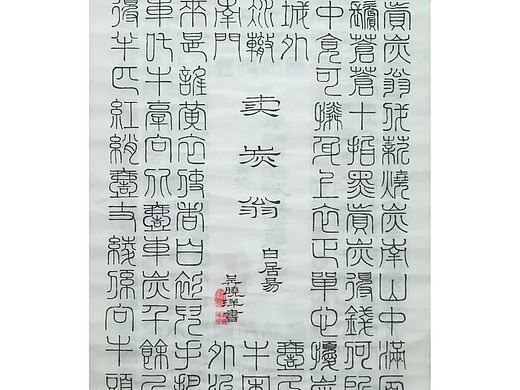 賣炭翁伐薪燒炭南山中滿面
鬢蒼蒼十指黑賣炭得錢何所
中食可憐身上衣正單心憂炭
城外
壹尺
冰轍
牛困
南門
外泥
卖炭翁
白居易
吴曉洋書
來是誰黃衣使者白衫兒手把
車叱牛牽向北壹車炭千餘斤
得半匹紅綃壹丈綾係向牛頭